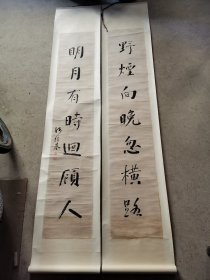 野煙向晚忽橫路
明月有時迴顧人